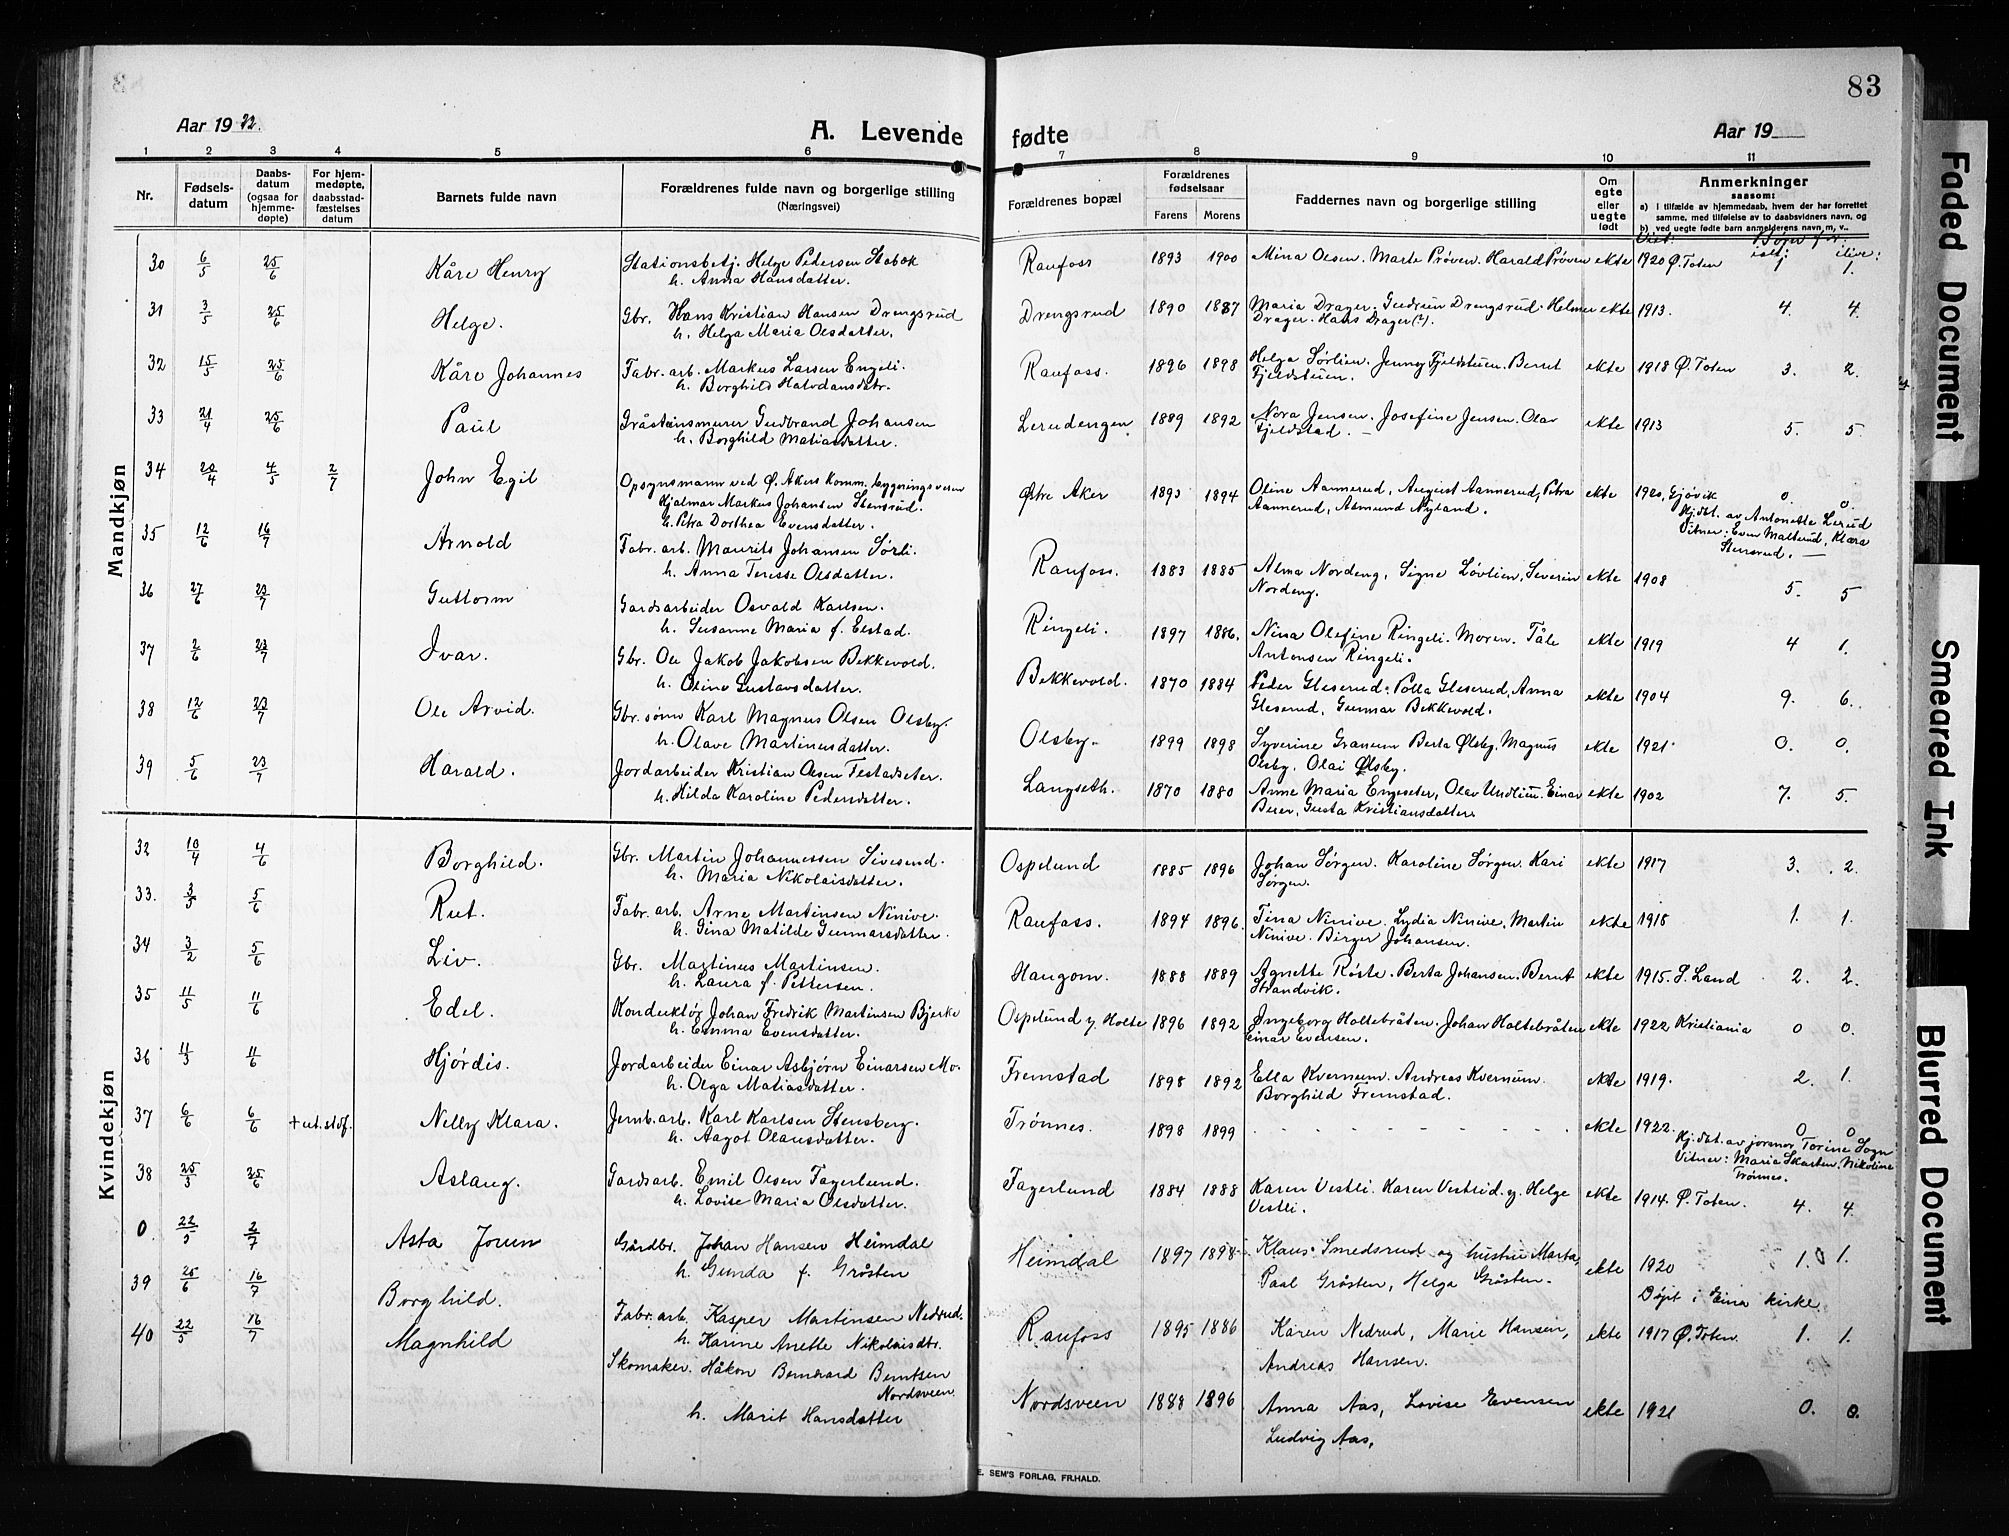 83
Aar 1922.
A. Levende fødte
Aar 19
1 2 3 4 5 6 7 8 9 10 11
Nr.
Fødsels-
datum
Daabs-
datum
(ogsaa for
hjemme-
døpte)
For hjem-
medøpte,
daabsstad-
fæstelses
datum
Barnets fulde navn
Forældrenes fulde navn og borgerlige stilling
(Næringsvei)
Forældrenes bopæl
Forældrenes
fødselsaar
Farens Morens
Faddernes navn og borgerlige stilling
Om
egte
eller
uegte
født
Anmerkninger
saasom:
a) i tilfælde av hjemmedaab, hvem der har forrettet
samme, med tilføielse av to daabsvidners navn, og
b) ved uegte fødte barn anmelderens navn, m, v..
Mandkjøn
30 6/5 25/6 Kåre Henry Stationsbetj. Helge Pedersen Stabok
h. Anna Hansdatter.
Raufoss 1893 1900 Mina Olsen. Marte Prøven. Harald Prøven ekte 1920 Ø. Toten 1 1.
31 3/5 25/6 Helge. Gbr. Hans Kristian Hansen Drengsrud
h. Helga Maria Olsdatter.
Drengsrud 1890 1887 Maria Drager. Gudrun Drengsrud. Helmer
Drager. Hans Drager (?). ekte 1913. 4. 4.
32 15/5 25/6 Kåre Johannes Fabr. arb. Markus Larsen Engeli.
h. Borghild Halvdansdatr.
Raufoss. 1896 1898 Helga Sørlien. Jenny Fjeldstuen. Bernt
Fjeldstuen. ekte 1918 Ø. Toten 3. 2.
33 21/4 25/6 Paul Gråstensmurer Gudbrand Johansen
h. Borghild Matiasdatter.
Lerudengen 1889 1892 Nora Jensen. Josefine Jensen. Olav
Fjeldstad. ekte 1913 5. 5.
34 20/4 4/5 2/7 John Egil Opsynsmann ved Ø. Akers Komm. bygningsvesen
Hjalmar Markus Johansen Stensrud.
h. Petra Dorthea Evensdatter.
Østre Aker 1893 1894 Oline Aannerud, August Aannerud, Petra
Aannerud, Asmund Nyland. ekte 1920, Gjøvik 0. 0.
Hj.dbt. av Antonette Lerud
Vitner: Even Malterud, Klara
Stensrud.
35 12/6 16/7 Arnold Fabr. arb. Maurits Johansen Sørli.
h. Anna Teresse Olsdatter.
Raufoss. 1883 1885 Alma Nordeng, Signe Løvlien, Severin
Nordeng. ekte 1908 5. 5
36 27/6 23/7 Guttorm Gardsarbeider Osvald Karlsen.
h. Susanne Maria f. Elstad.
Ringeli. 1897 1886. Nina Olefine Ringeli. Moren. Tåle
Antonsen Ringeli. ekte 1919 4 1.
37 2/6 23/7 Ivar. Gbr. Ole Jakob Jakobsen Bekkevold.
h. Oline Gustavsdatter.
Bekkevold. 1870 1884 Peder Gleserud. Polla Gleserud, Anna
Gleserud, Gunnar Bekkevold. ekte 1904 9. 6.
38 12/6 23/7 Ole Arvid. Gbr. sønn Karl Magnus Olsen Olsby.
h. Olave Martinusdatter.
Olsby. 1899 1898 Syverine Granum Berta Ølsby. Magnus
Olsby. Olai Ølsby. ekte 1921. 0. 0.
39 5/6 23/7 Harald. Jordarbeider Kristian Olsen Festadseter.
h. Hilda Karoline Pedersdatter.
Langseth. 1870 1880 Anne Maria Engeseter, Olav Undlien. Einar
Berer, Gusta Kristiansdatter. ekte 1902 7. 5.
Kvindekjøn
32 10/4 4/6 Borghild. Gbr. Martin Johannessen Sivesend.
h. Maria Nikolaisdatter.
Ospelund 1885 1896 Johan Sørgen. Karoline Sørgen. Kari
Sørgen. ekte 1917 3. 2.
33. 3/5 5/6 Rut. Fabr. arb. Arne Martinsen Ninive.
h. Gina Matilde Gunnarsdatter.
Raufoss. 1894 1896. Tina Ninive. Lydia Ninive, Martin
Ninive. Birger Johansen. ekte 1918 1. 1.
34 3/2 5/6 Liv. Gbr. Martinus Martinsen.
h. Laura f. Pettersen.
Haugom. 1888 1889 Agnette Røste. Berta Johansen. Bernt
Strandvik. ekte 1915. S. Land 2. 2.
35 11/5 11/6 Edel. Konduktør Johan Fredrik Martinsen Bjerke
h. Emma Evensdatter.
Ospelund y. Holte 1896 1892 Ingeborg Holtebråten. Johan Holtebråten
Einar Evensen. ekte 1922 Kristiania 0 0.
36 11/5 11/6 Hjørdis. Jordarbeider Einar Asbjørn Einarsen Mo.
h. Olga Matiasdatter.
Fremstad 1898 1892 Ella Kvernum. Andreas Kvernum.
Borghild Fremstad. ekte 1919. 2. 1.
37 6/6 6/6 + ut. stdf. Nelly Klara. Jernb.arb. Karl Karlsen Stensberg.
h. Aagot Olausdatter.
Trønnes. 1898 1899 ekte 1922. 0 0
Hj. dbt. av jormor Torine Sogn
Vitner: Maria Skarten. Nikoline
Trønnes.
38 25/5 25/6 Aslaug. Gardsarb. Emil Olsen Fagerlund.
h. Lovise Maria Olsdatter.
Fagerlund 1884 1888 Karen Vestli. Karen Vestrid. y. Helge
Vestli. ekte 1914. Ø. Toten. 4. 4.
0. 22/5 2/7 Asta Jorun Gårdbr. Johan Hansen Heimdal
h. Gunda f. Grøsten
Heimdal 1897 1898 Klaus Smedsrud og hustru Marta,
Paal Grøsten, Helga Grøsten. ekte 1920 1. 1.
Døpt i Eina kirke
39 25/6 16/7 Borghild. Fabr. arb. Kasper Martinsen Nedrud.
h. Karine Anette Nikolaisdtr.
Raufoss 1895 1886 Karen Nedrud, Marie Hansen,
Andreas Hansen. ekte 1917 Ø. Toten. 1. 1.
40 22/5 16/7 Magnhild Skomaker. Håkon Bernhard Berntsen
Nordsveen.
h. Marit Hansdatter
Nordsveen 1888 1896 Anna Aas, Lovise Evensen
Ludvig Aas, ekte 1921 0. 0.
E. SEM'S FORLAG, FR.HALD.
Faded Document
Smeared Ink
Blurred Document